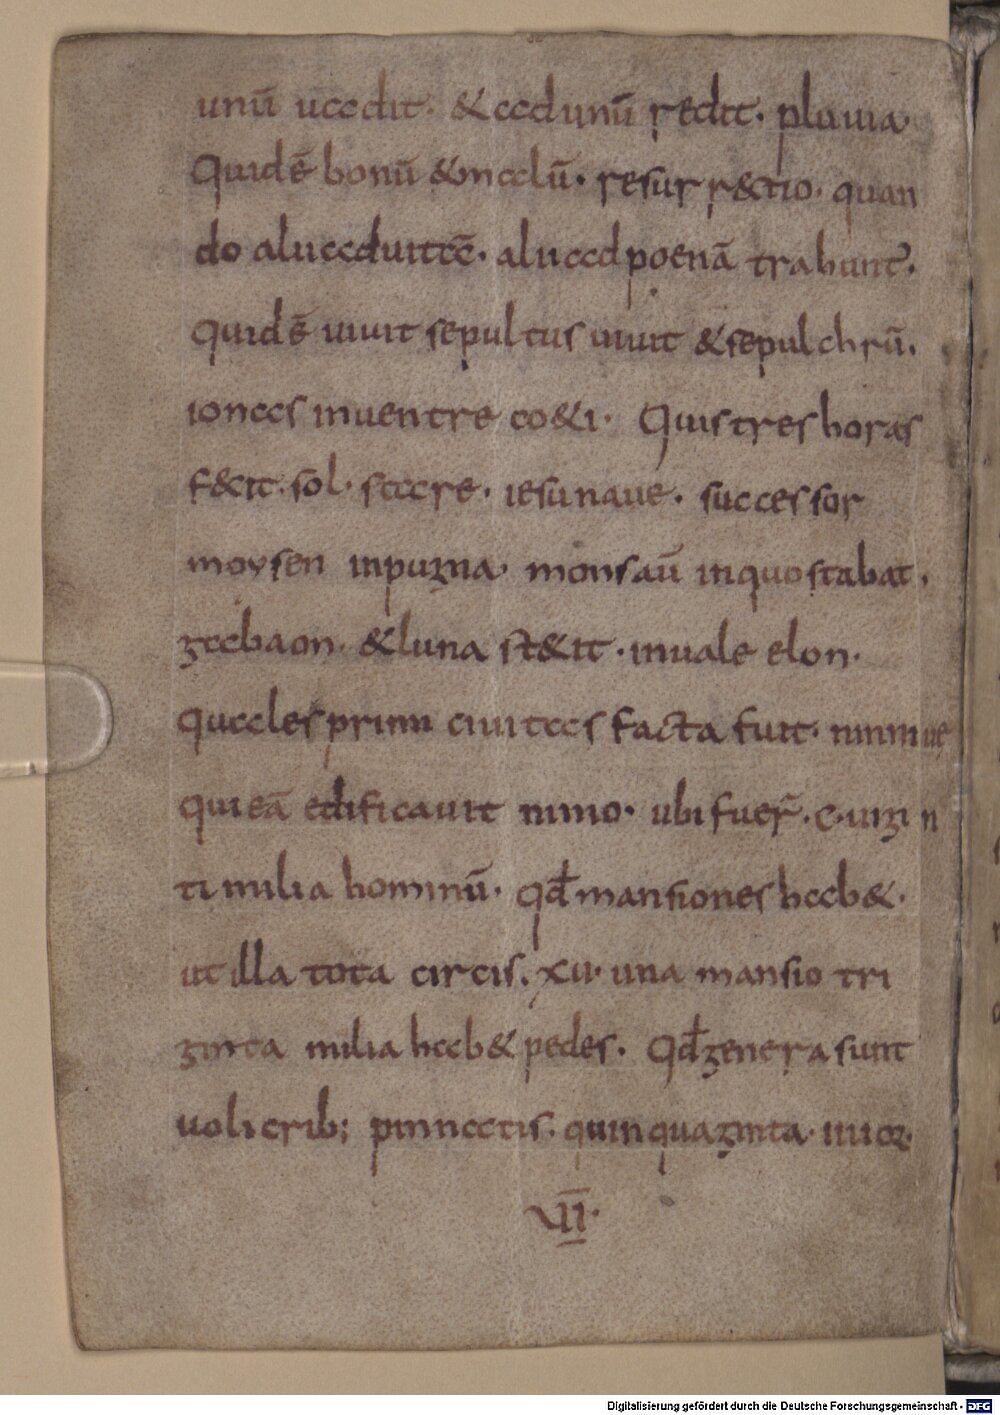 unū uadit. & adunū redit. pluuia.
Quidē bonū & malū. resurr&ctio. quan
do alii aduitā. alii adpoenā trahunt.
Quidē uiuit sepultus uiuit & sepulchrū.
ionas inuentre co&i. Quis tres horas
f&cit. sol. stare. iesunaue. successor
moysen inpugna. monsaū inquo stabat.
gabaon. & luna st&it. inuale elon.
quales prim ciuitas facta fuit. niniue
qui eā edificauit nino. ubi fuer̄. c. uigin
ti milia hominū. qd̄ mansiones hab&.
ut illa tota circis. xii. una mansio tri
ginta milia hab& pedes. Qd̄ genera sunt
uolicrib; pinnatis. quinquaginta. iiiior.
VII.
Digitalisierung gefördert durch die Deutsche Forschungsgemeinschaft - DFG